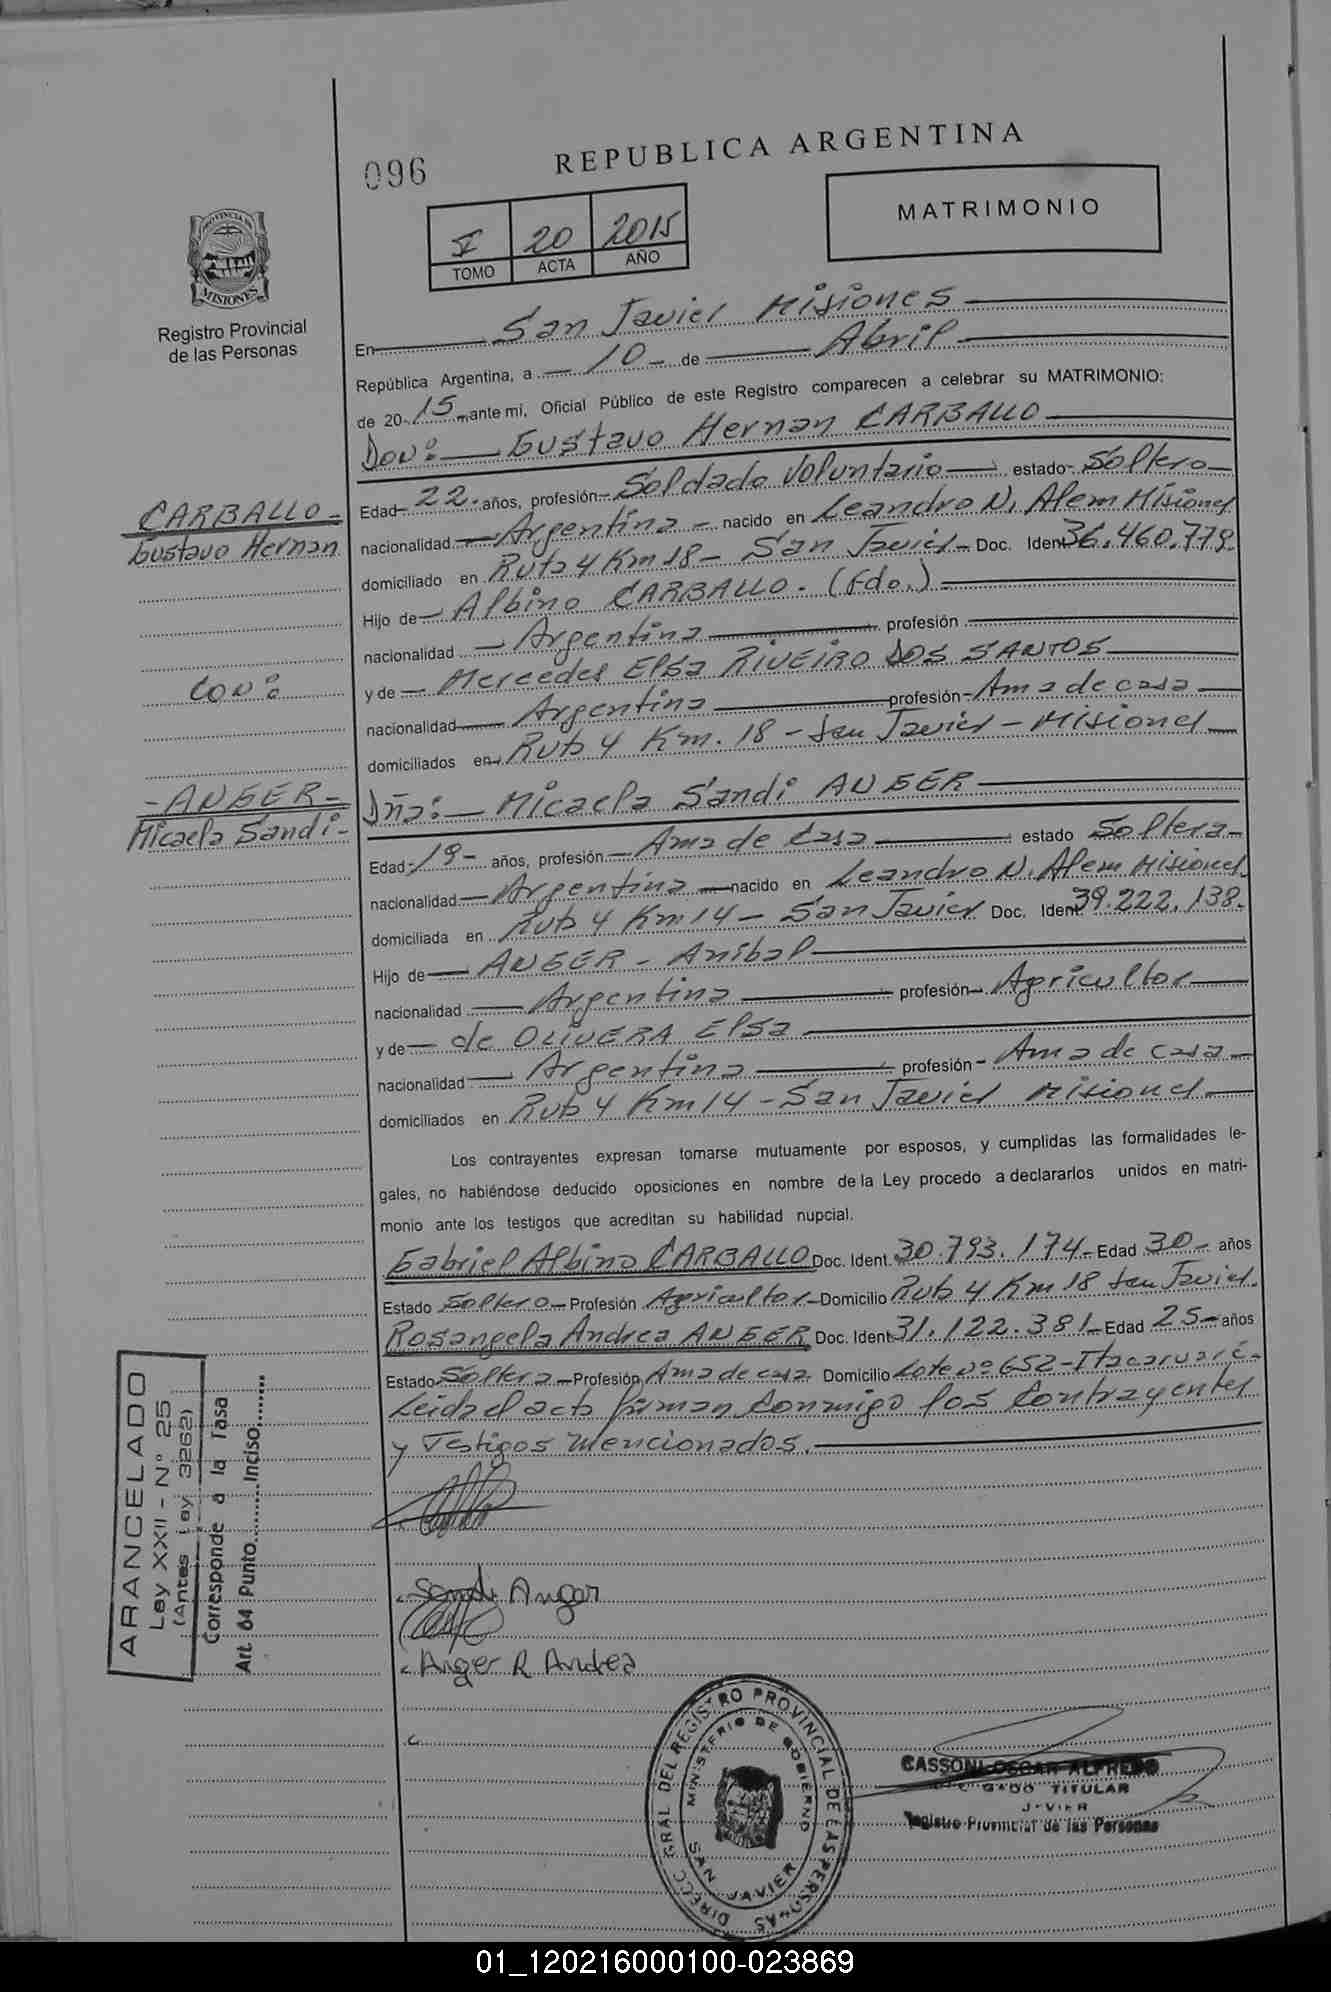 096
REPUBLICA ARGENTINA
I 20 2015
TOMO ACTA AÑO
MATRIMONIO
PROVINCIA DE
MISIONES
Registro Provincial
de las Personas
En San Javier Misiones
República Argentina, a 10 de Abril
de 2015 ante mi, Oficial Público de este Registro comparecen a celebrar su MATRIMONIO:
Don: Gustavo Hernan CARBALLO
CARBALLO
Gustavo Hernan
Edad 22 años, profesión Soldado Voluntario estado Soltero
nacionalidad Argentina nacido en Leandro N. Alem Misiones
domiciliado en Ruta 4 Km 18 - San Javier Doc. Ident 36.460.779
Hijo de Albino CARBALLO. (Fdo.)
nacionalidad Argentina profesión
Con:
y de Mercedes Elsa RIVEIRO DOS SANTOS
nacionalidad Argentina profesión Ama de casa
domiciliados en Ruta 4 Km. 18 - San Javier - Misiones
- ANGER -
Micaela Sandi
Dña: Micaela Sandi ANGER
Edad 19 años, profesión Ama de Casa estado Soltera
nacionalidad Argentina nacido en Leandro N. Alem Misiones
domiciliada en Ruta 4 Km 14 - San Javier Doc. Ident. 39.222.138
Hijo de ANGER - Anibal
nacionalidad Argentina profesión Agricultor
y de de OLIVERA Elsa
nacionalidad Argentina profesión Ama de casa
domiciliados en Ruta 4 Km 14 - San Javier Misiones
Los contrayentes expresan tomarse mutuamente por esposos, y cumplidas las formalidades le-
gales, no habiéndose deducido oposiciones en nombre de la Ley procedo a declararlos unidos en matri-
monio ante los testigos que acreditan su habilidad nupcial.
Gabriel Albino CARBALLO Doc. Ident. 30.793.174 Edad 30 años
Estado Soltero Profesión Agricultor Domicilio Ruta 4 Km 18 San Javier.
Rosangela Andrea ANGER Doc. Ident 31.122.381 Edad 25 años
Estado Soltera Profesión Ama de casa Domicilio Lote Nº 652 - Itacaruaré.
Leida el acta firman conmigo los Contrayentes
y Testigos mencionados.
ARANCELADO
Ley XXII - Nº 25
(Antes Ley 3262)
Corresponde a la Tasa
Art. 64 Punto......Inciso......
Sandi Anger
Anger R Andrea
DIRECC. GRAL DEL REGISTRO PROVINCIAL DE LAS PERSONAS
MINISTERIO DE GOBIERNO
SAN JAVIER
CASSONI OSCAR ALFREDO
TITULAR
JAVIER
Registro Provincial de las Personas
01_120216000100-023869